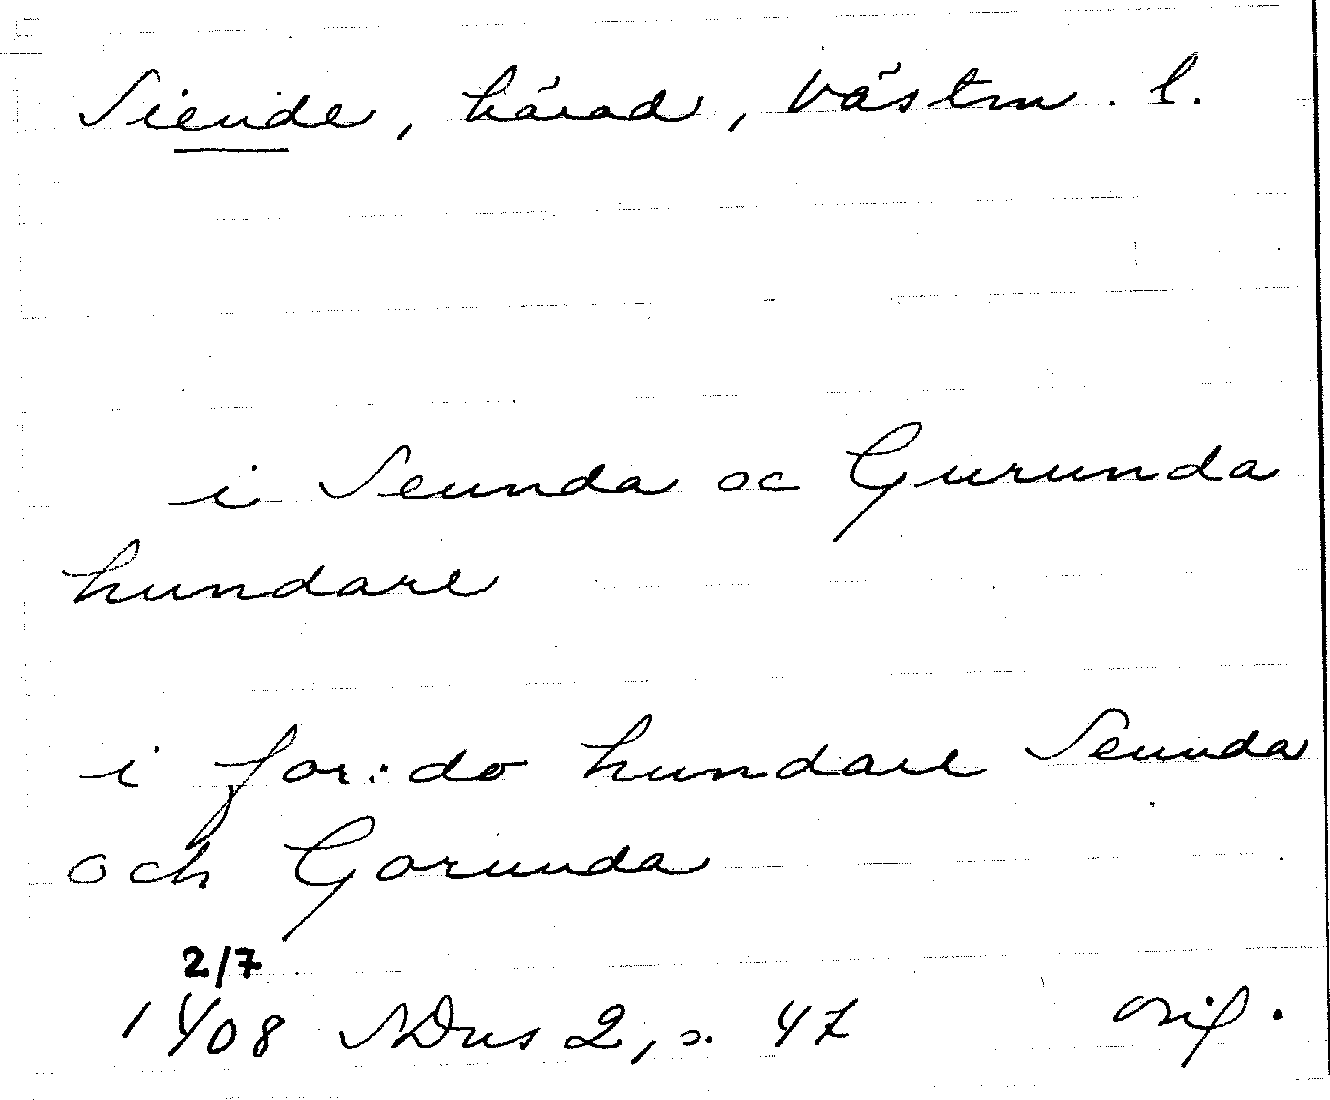 Siende, härad, Västm. l.
i Seunda oc Gurunda
hundare
i for:do hundare Seunda
och Gorunda
2/7
1408 SDns 2, s. 47 orig.